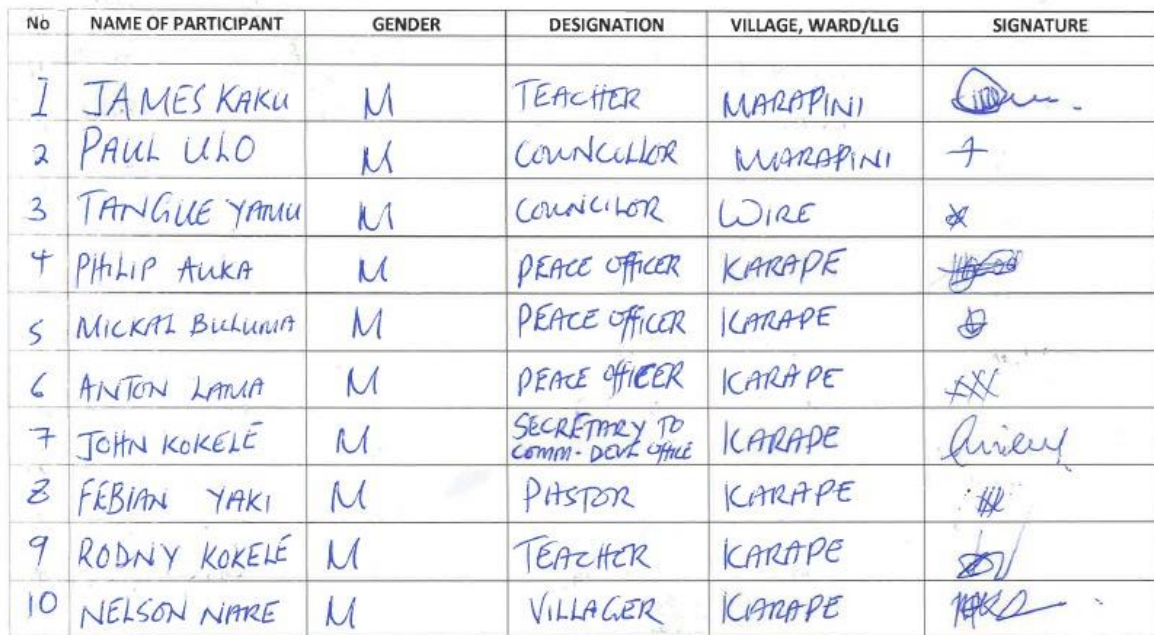 No NAME OF PARTICIPANT GENDER DESIGNATION VILLAGE, WARD/LLG SIGNATURE
1 JAMES KAKU M TEACHER MARAPINI
2 PAUL ULO M COUNCILLOR MARAPINI
3 TANGUE YAMU M COUNCILOR WIRE
4 PHILIP AUKA M PEACE OFFICER KARAPE
5 MICKAL BULUMA M PEACE OFFICER KARAPE
6 ANTON LAMA M PEACE OFFICER KARAPE
7 JOHN KOKELE M SECRETARY TO COMM-DEVL OFFICE KARAPE
8 FEBIAN YAKI M PASTOR KARAPE
9 RODNY KOKELE M TEACHER KARAPE
10 NELSON NARE M VILLAGER KARAPE